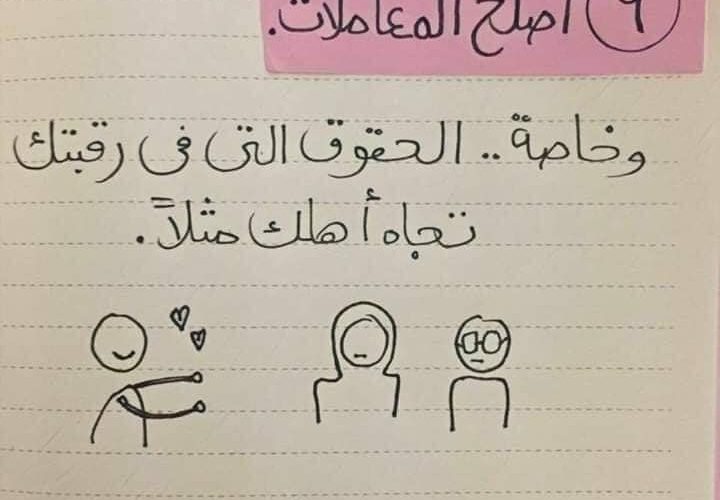 ٩ أصلح المعاملات.
وخاصة .. الحقوق التى فى رقبتك
تجاه أهلك مثلاً.